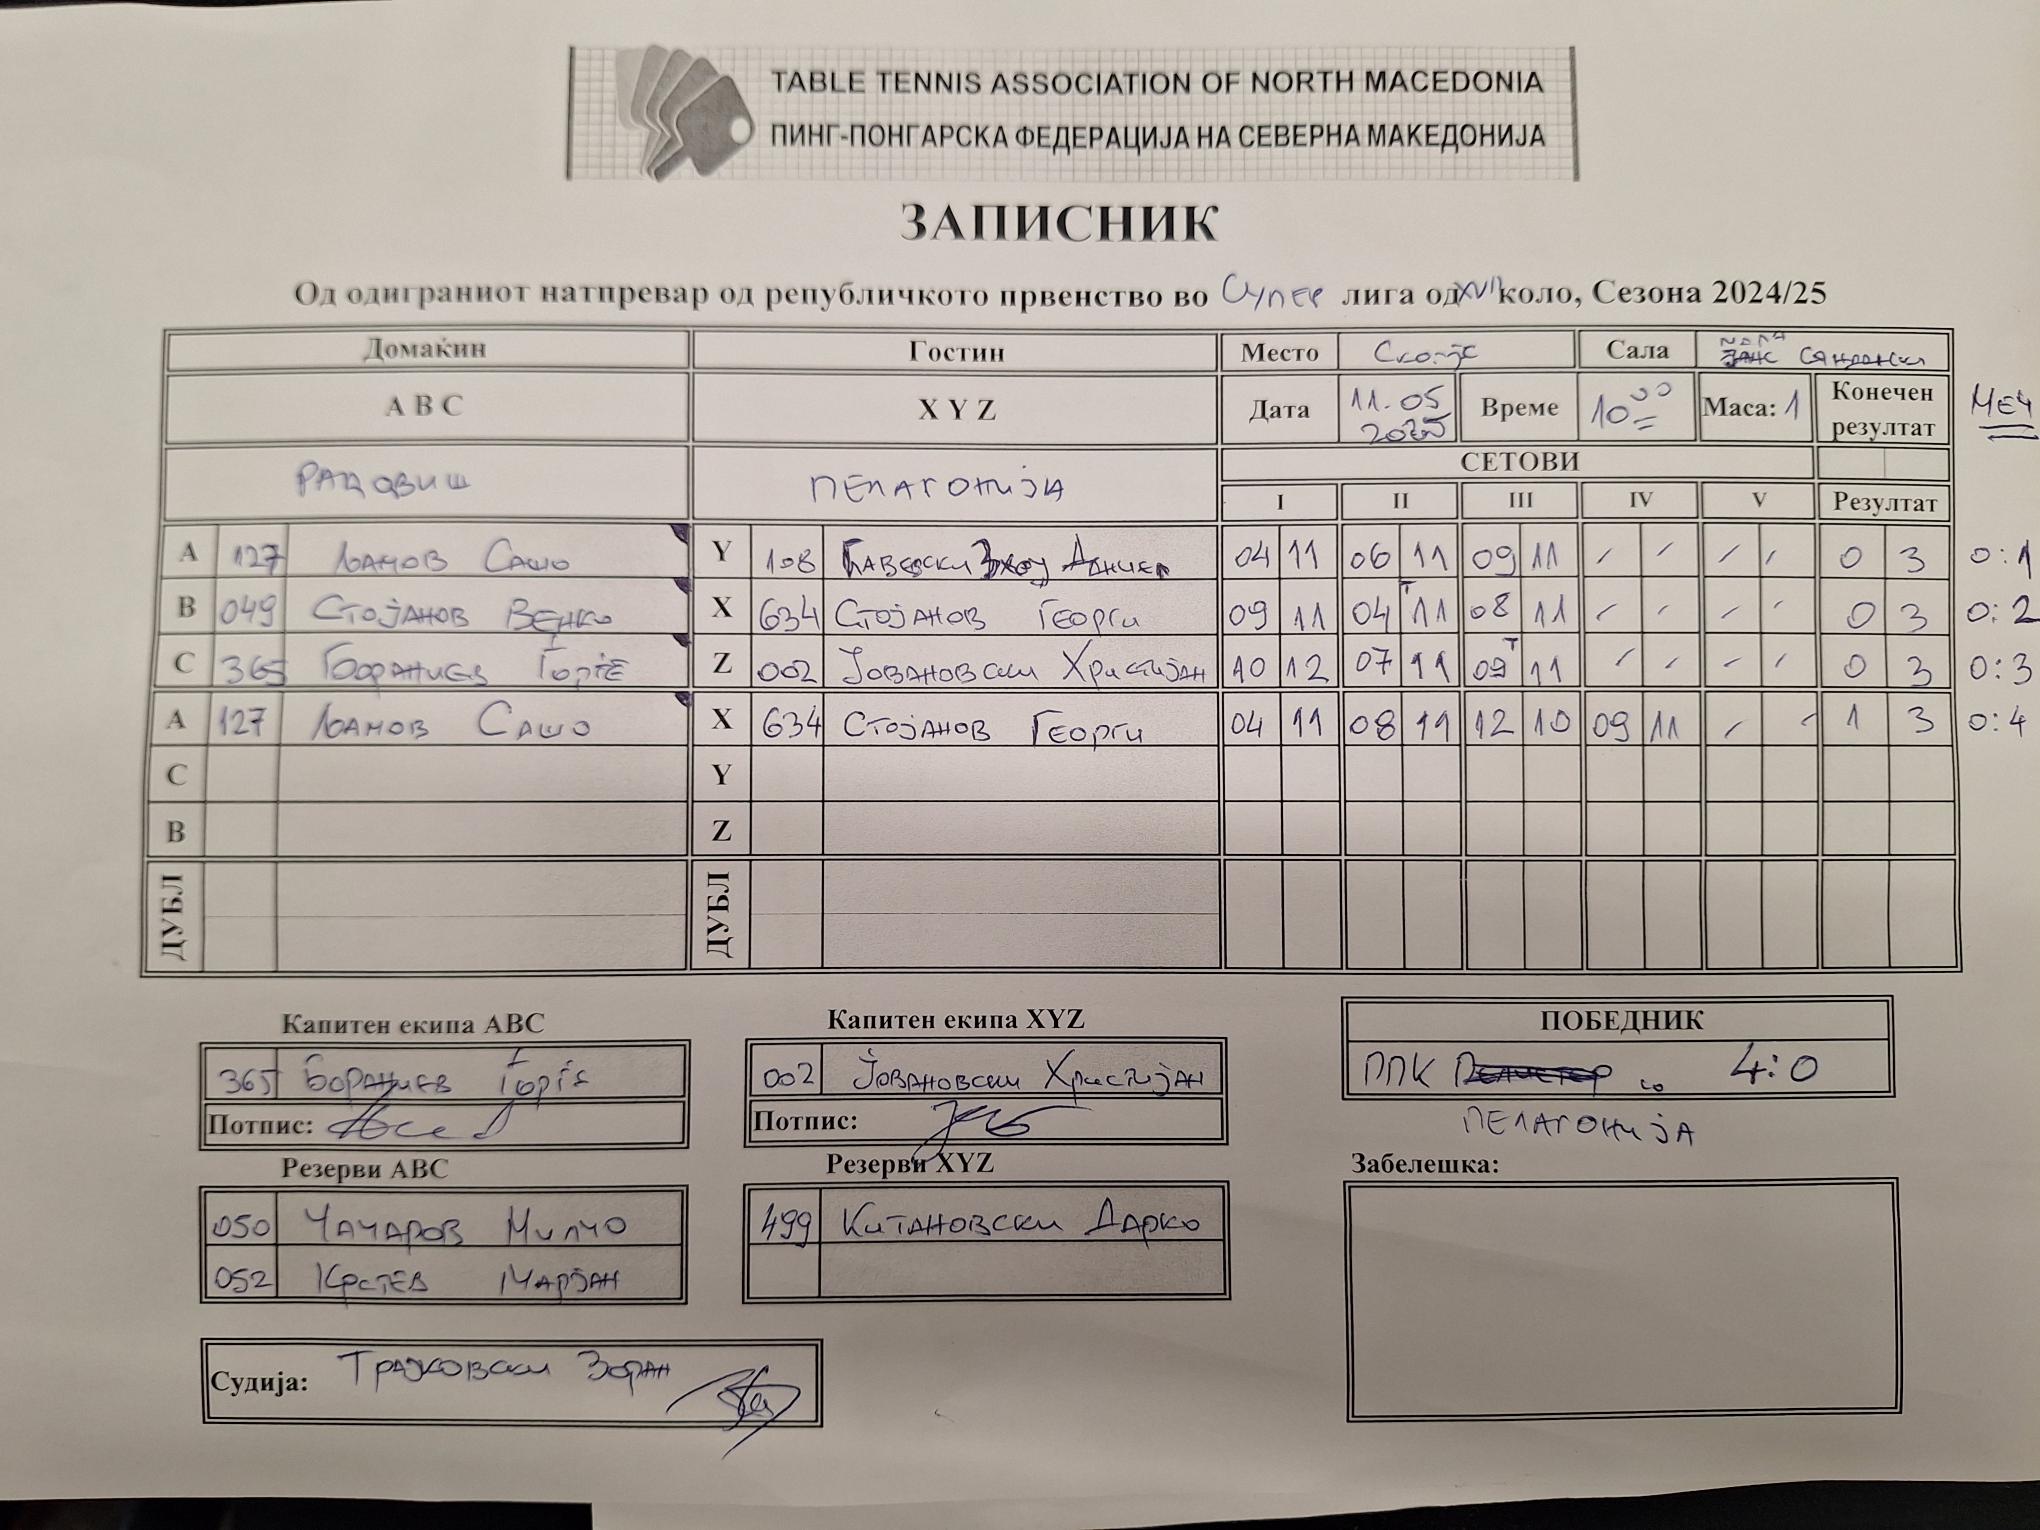 TABLE TENNIS ASSOCIATION OF NORTH MACEDONIA
ПИНГ-ПОНГАРСКА ФЕДЕРАЦИЈА НА СЕВЕРНА МАКЕДОНИЈА
ЗАПИСНИК
Од одиграниот натпревар од републичкото првенство во Супер лига од XVII коло, Сезона 2024/25
Домаќин Гостин Место Скопје Сала Сандански
A B C X Y Z Дата 11.05 2025 Време 10 00 Маса: 1 Конечен резултат МЕЧ
РАДОВИШ ПЕЛАГОНИЈА СЕТОВИ
I II III IV V Резултат
A 127 Сашо Y 108 04 11 06 11 09 11 - - - - 0 3 0:1
B 049 Стојанов Венко X 634 Стојанов Георги 09 11 04 11 08 11 - - - - 0 3 0:2
C 365 Ѓорѓе Z 002 Јовановски Христијан 10 12 07 11 09 11 - - - - 0 3 0:3
A 127 Сашо X 634 Стојанов Георги 04 11 08 11 12 10 09 11 - - 1 3 0:4
C Y
B Z
ДУБЛ ДУБЛ
Капитен екипа ABC Капитен екипа XYZ ПОБЕДНИК
365 Ѓорѓе 002 Јовановски Христијан ППК со 4:0
Потпис: Потпис: ПЕЛАГОНИЈА
Резерви ABC Резерви XYZ Забелешка:
050 Чачаров Милчо 499 Китановски Дарко
052 Крстев Марјан
Судија: Трајковски Зоран